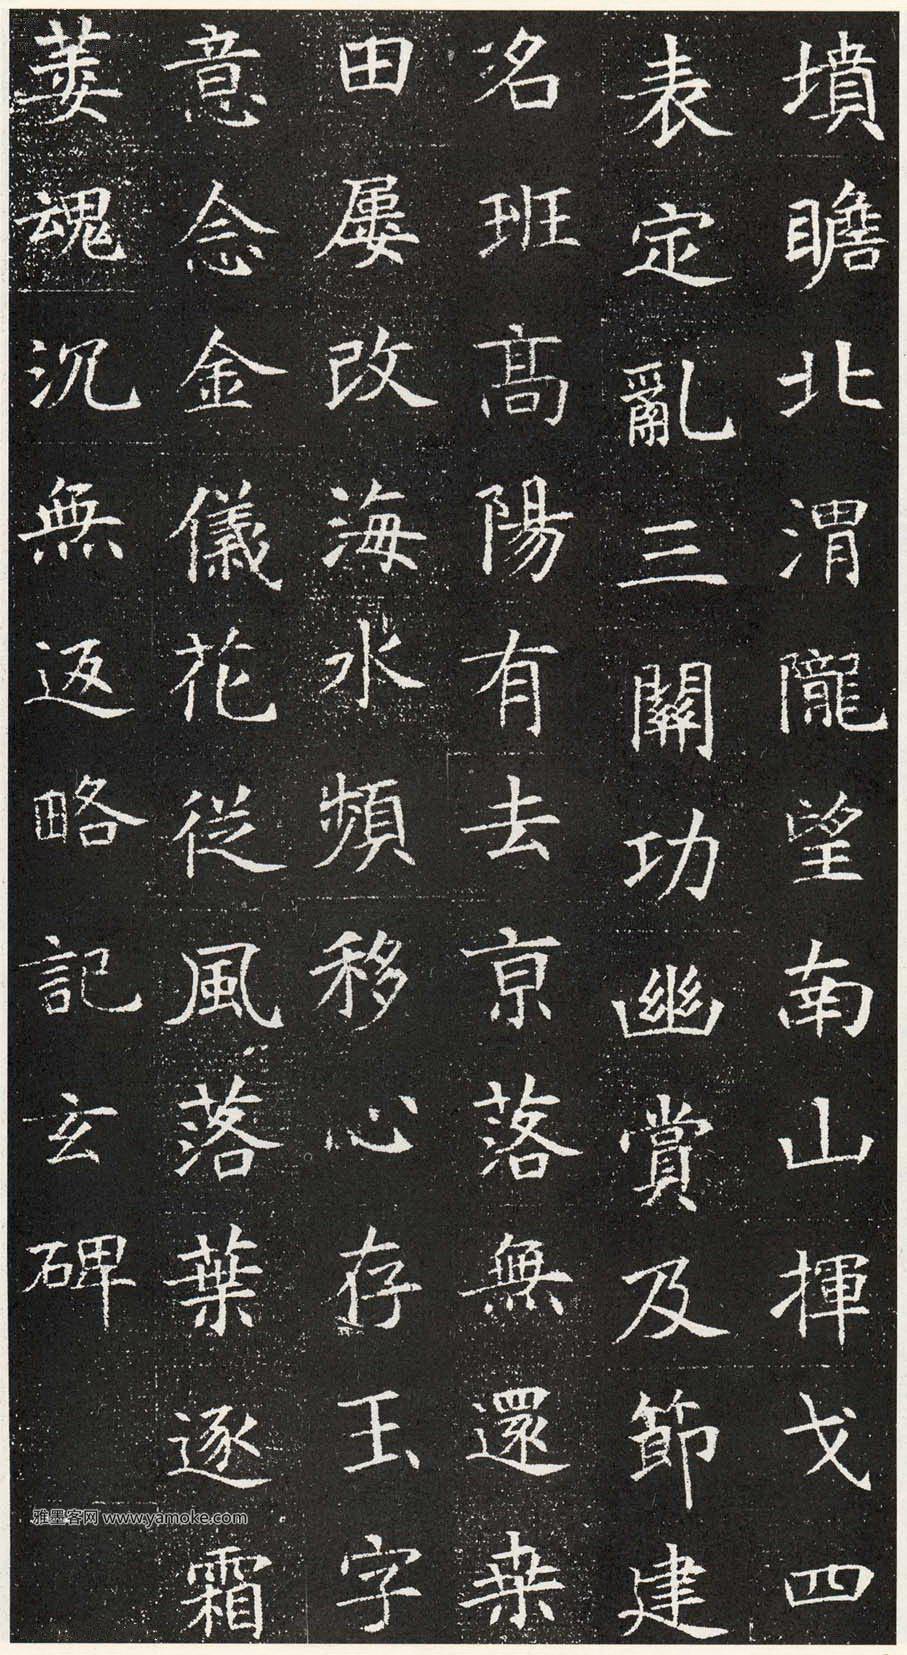 墳瞻北渭隴望南山揮戈四
表定亂三關功幽賞及節建
名班高陽有去京落無還桒
田屢改海水頻移心存王字
意念金儀花從風落葉逐霜
萎魂沉無返略記玄碑
雅墨客网 www.yamoke.com